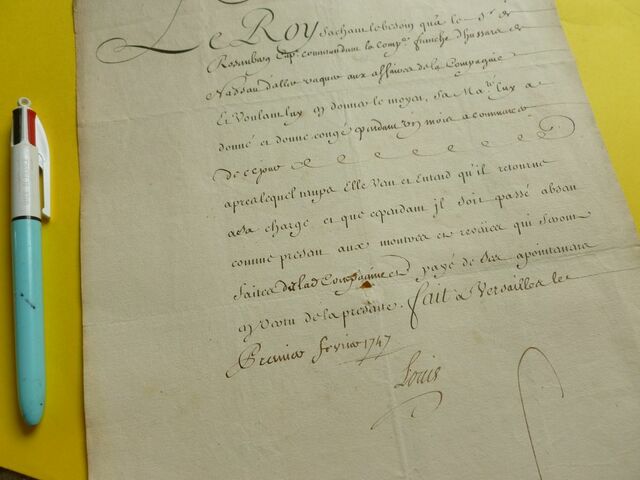 Le Roy sachant le besoin qu'a le Sr. de
Rosemberg Cap.ne commandant la comp.e franche d'hussars de
Nassau d'aller vaquer aux affaires de la Compagnie
Et Voulant luy en donner le moyen, Sa Ma.té luy a
donné et donne congé pendant un mois a commencer
de ce jour
apres lequel temps Elle veut et Entend qu'il retourne
a sa charge et que cependant jl soit passé absent
comme present aux montres et reveües qui seront
faites de lad. Compagnie et payé de ses apointemens
en vertu de la presente. fait a Versailles le
Premier fevrier 1747
Louis